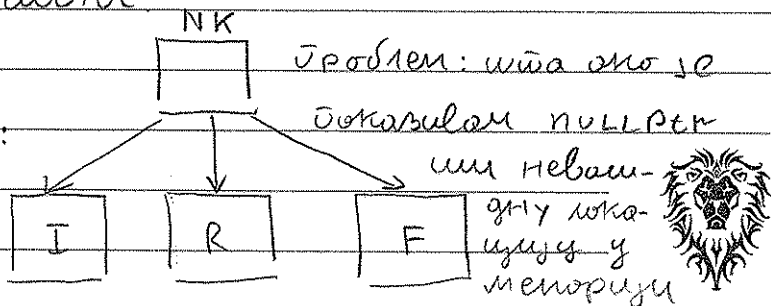 NK
проблем: шта ако је
показивач nullptr
или невали-
дну лока-
цију у
меморији
I R F